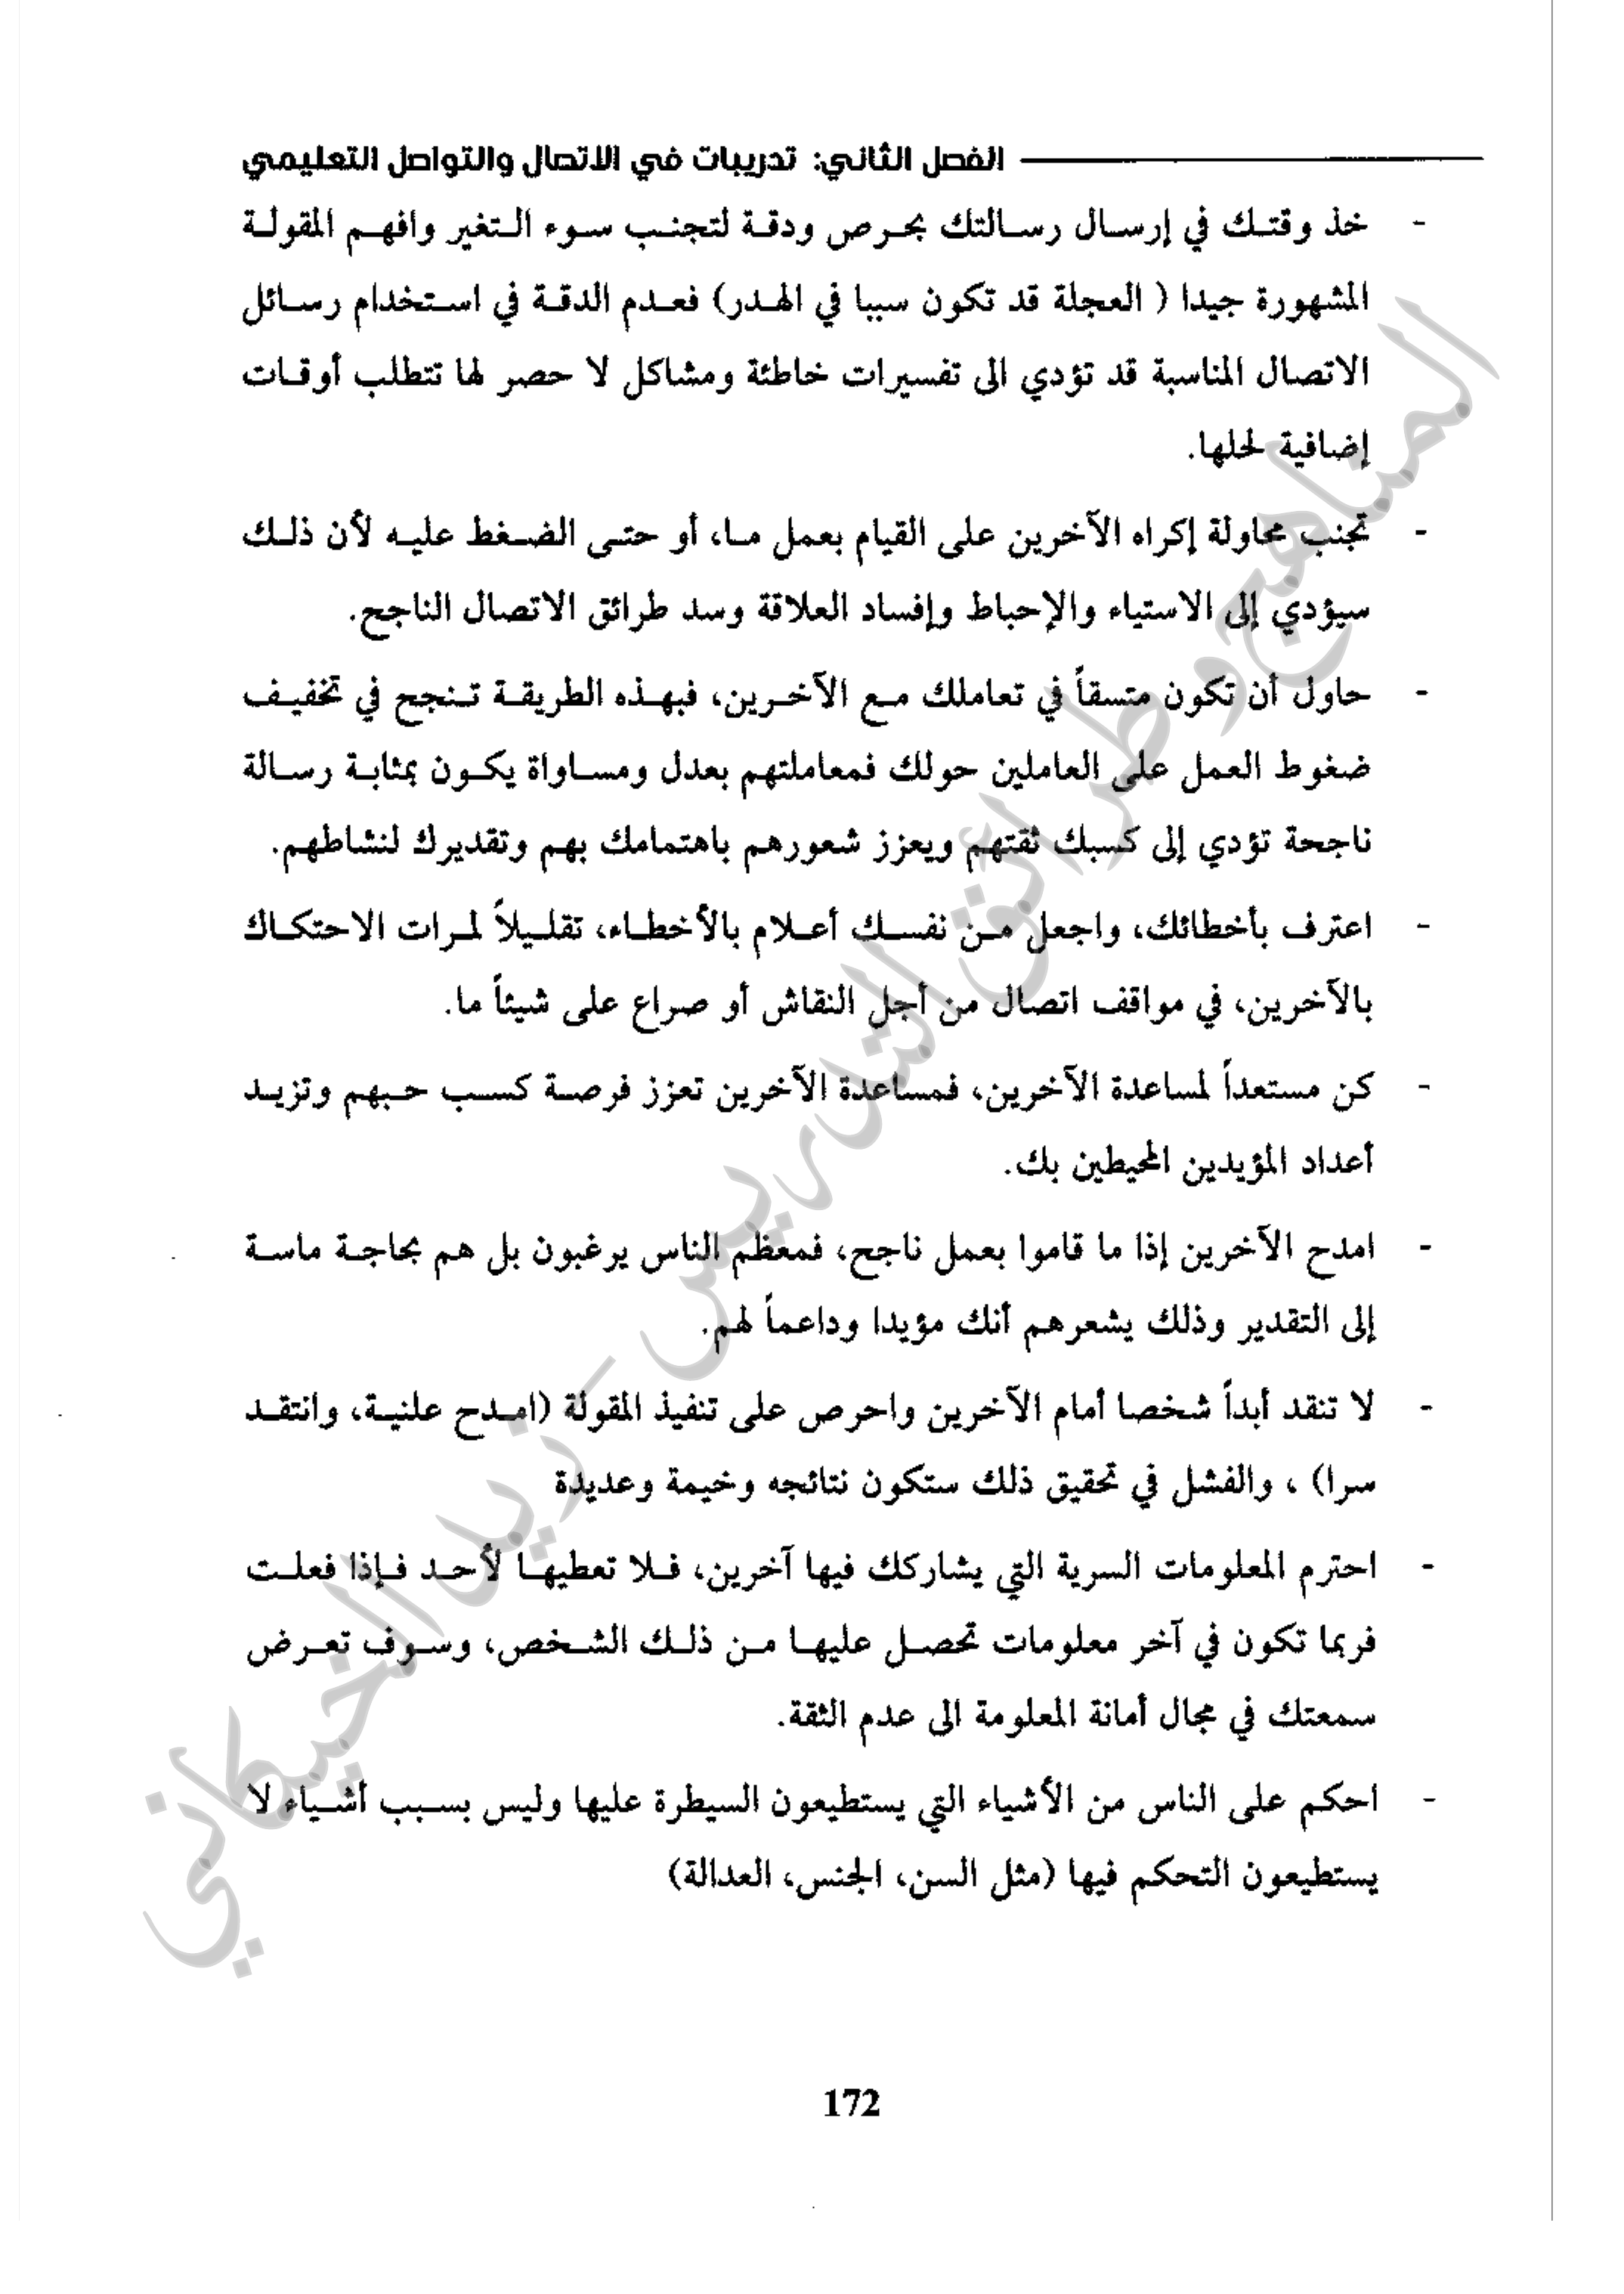 الفصل الثاني: تدريبات في الاتصال والتواصل التعليمي
- خذ وقتك في إرسال رسالتك بحرص ودقة لتجنب سوء التغير وافهم المقولة
المشهورة جيدا ( العجلة قد تكون سببا في الهدر) فعدم الدقة في استخدام رسائل
الاتصال المناسبة قد تؤدي الى تفسيرات خاطئة ومشاكل لا حصر لها تتطلب أوقات
إضافية لحلها.
- تجنب محاولة إكراه الآخرين على القيام بعمل ما، أو حتى الضغط عليه لأن ذلك
سيؤدي إلى الاستياء والإحباط وإفساد العلاقة وسد طرائق الاتصال الناجح.
- حاول أن تكون متسقاً في تعاملك مع الآخرين، فبهذه الطريقة تنجح في تخفيف
ضغوط العمل على العاملين حولك فمعاملتهم بعدل ومساواة يكون بمثابة رسالة
ناجحة تؤدي إلى كسبك ثقتهم ويعزز شعورهم باهتمامك بهم وتقديرك لنشاطهم.
- اعترف بأخطائك، واجعل من نفسك أعلام بالأخطاء، تقليلاً لمرات الاحتكاك
بالآخرين، في مواقف اتصال من أجل النقاش أو صراع على شيئاً ما.
- كن مستعداً لمساعدة الآخرين، فمساعدة الآخرين تعزز فرصة كسب حبهم وتزيد
أعداد المؤيدين المحيطين بك.
- امدح الآخرين إذا ما قاموا بعمل ناجح، فمعظم الناس يرغبون بل هم بحاجة ماسة
إلى التقدير وذلك يشعرهم أنك مؤيدا وداعماً لهم.
- لا تنقد أبداً شخصا أمام الآخرين واحرص على تنفيذ المقولة (امدح علنية، وانتقد
سرا) ، والفشل في تحقيق ذلك ستكون نتائجه وخيمة وعديدة
- احترم المعلومات السرية التي يشاركك فيها آخرين، فلا تعطيها لأحد فإذا فعلت
فربما تكون في آخر معلومات تحصل عليها من ذلك الشخص، وسوف تعرض
سمعتك في مجال أمانة المعلومة الى عدم الثقة.
- احكم على الناس من الأشياء التي يستطيعون السيطرة عليها وليس بسبب أشياء لا
يستطيعون التحكم فيها (مثل السن، الجنس، العدالة)
172
المناهج وطرائق التدريس - زيد الخيكاني